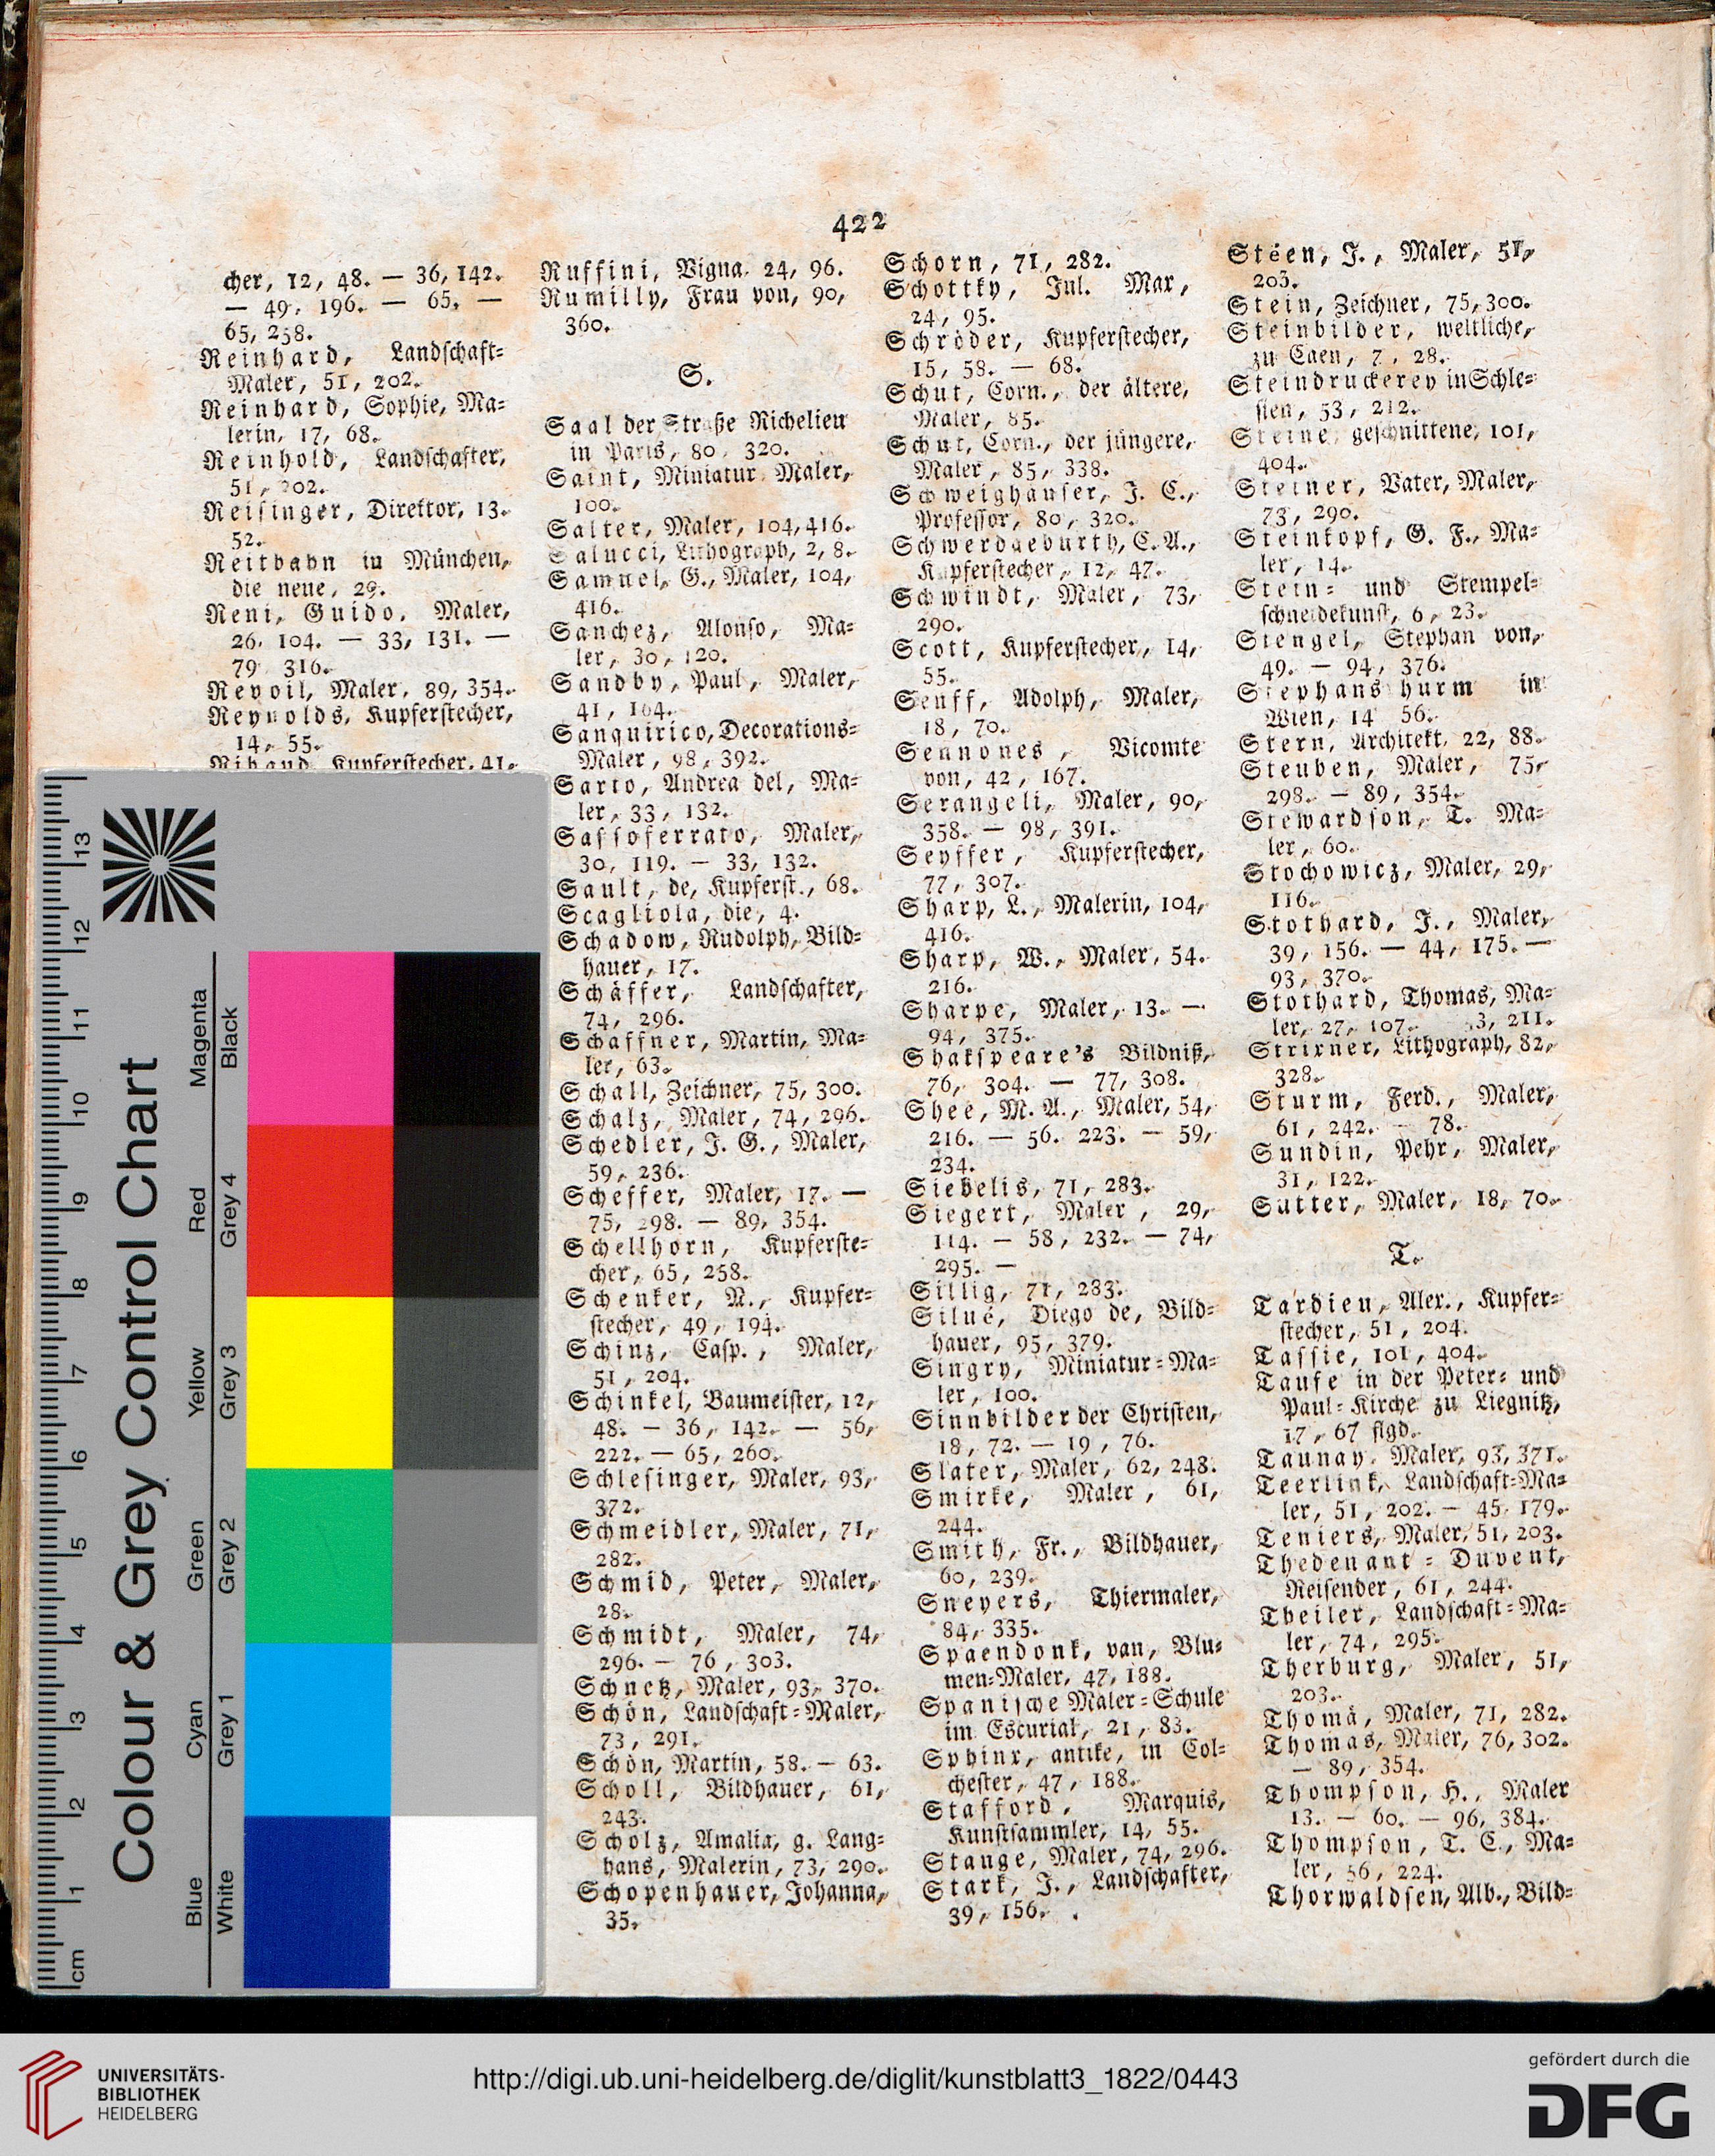 422
cher, 12, 48. — 36, 142.
— 49, 196. — 65. —
65, 258.
Reinhard, Landschaft-
Maler, 51, 202.
Reinhard, Sophie, Ma-
lerin, 17, 68.
Reinhold, Landschafter,
51, 202.
Reisinger, Direktor, 13.
52.
Reitbahn in München,
die neue, 29.
Reni, Guido, Maler,
26, 104. — 33, 131. —
79, 316.
Revoil, Maler, 89, 354.
Reynolds, Kupferstecher,
14, 55.
Ribaud, Kupferstecher, 41.
Ruffini, Vigna, 24, 96.
Rumilly, Frau von, 90,
360.
S.
Saal der Straße Richelieu
in Paris, 80, 320.
Saint, Miniatur Maler,
100.
Salter, Maler, 104, 416.
Salucci, Lithograph, 2, 8.
Samuel, G., Maler, 104,
416.
Sanchez, Alonso, Ma-
ler, 30, 120.
Sandby, Paul, Maler,
41, 164.
Sanquirico, Decorations-
Maler, 98, 392.
Sarto, Andrea del, Ma-
ler, 33, 132.
Sassoferrato, Maler,
30, 119. — 33, 132.
Sault, de, Kupferst., 68.
Scagliola, die, 4.
Schadow, Rudolph, Bild-
hauer, 17.
Schäffer, Landschafter,
74, 296.
Schaffner, Martin, Ma-
ler, 63.
Schall, Zeichner, 75, 300.
Schalz, Maler, 74, 296.
Schedler, J. G., Maler,
59, 236.
Scheffer, Maler, 17. —
75, 298. — 89, 354.
Schellhorn, Kupferste-
cher, 65, 258.
Schenker, N., Kupfer-
stecher, 49, 194.
Schinz, Casp., Maler,
51, 204.
Schinkel, Baumeister, 12,
48. — 36, 142. — 56,
222. — 65, 260.
Schlesinger, Maler, 93,
372.
Schmeidler, Maler, 71,
282.
Schmid, Peter, Maler,
28.
Schmidt, Maler, 74,
296. — 76, 303.
Schnetz, Maler, 93, 370.
Schön, Landschaft-Maler,
73, 291.
Schön, Martin, 58. — 63.
Scholl, Bildhauer, 61,
243.
Scholz, Amalia, g. Lang-
hans, Malerin, 73, 290.
Schopenhauer, Johanna,
35.
Schorn, 71, 282.
Schottky, Jul. Max,
24, 95.
Schröder, Kupferstecher,
15, 58. — 68.
Schut, Corn., der ältere,
Maler, 85.
Schut, Corn., der jüngere,
Maler, 85, 338.
Schweighäuser, J. C.,
Professor, 80, 320.
Schwerdgeburth, C. A.,
Kupferstecher, 12, 47.
Schwindt, Maler, 73,
290.
Scott, Kupferstecher, 14,
55.
Senff, Adolph, Maler,
18, 70.
Sennones, Vicomte
von, 42, 167.
Serangeli, Maler, 90,
358. — 98, 391.
Seyffer, Kupferstecher,
77, 307.
Sharp, L., Malerin, 104,
416.
Sharp, W., Maler, 54.
216.
Sharpe, Maler, 13. —
94, 375.
Shakspeare's Bildniß,
76, 304. — 77, 308.
Shee, M. A., Maler, 54,
216. — 56. 223. — 59,
234.
Siebelis, 71, 283.
Siegert, Maler, 29,
114. — 58, 232. — 74,
295. —
Sillig, 71, 283.
Silué, Diego de, Bild-
hauer, 95, 379.
Singry, Miniatur-Ma-
ler, 100.
Sinnbilder der Christen,
18, 72. — 19, 76.
Slater, Maler, 62, 248.
Smirke, Maler, 61,
244.
Smith, Fr., Bildhauer,
60, 239.
Sneyers, Thiermaler,
84, 335.
Spaendonk, van, Blu-
men-Maler, 47, 188.
Spanische Maler-Schule
im Escurial, 21, 83.
Sphinx, antike, in Col-
chester, 47, 188.
Stafford, Marquis,
Kunstsammler, 14, 55.
Stange, Maler, 74, 296.
Stark, J., Landschafter,
39, 156.
Stéen, J., Maler, 51,
203.
Stein, Zeichner, 75, 300.
Steinbilder, weltliche,
zu Caen, 7, 28.
Steindruckerey in Schle-
sien, 53, 212.
Steine, geschnittene, 101,
404.
Steiner, Vater, Maler,
73, 290.
Steinkopf, G. F., Ma-
ler, 14.
Stein- und Stempel-
schneidekunst, 6, 23.
Stengel, Stephan von,
49. — 94, 376.
Stephansthurm in
Wien, 14 56.
Stern, Architekt, 22, 88.
Steuben, Maler, 75,
298. — 89, 354.
Stewardson, T. Ma-
ler, 60.
Stochowicz, Maler, 29,
116.
Stothard, J., Maler,
39, 156. — 44, 175. —
93, 370.
Stothard, Thomas, Ma-
ler, 27, 107. 3, 211.
Strixner, Lithograph, 82,
328.
Sturm, Ferd., Maler,
61, 242. — 78.
Sundin, Pehr, Maler,
31, 122.
Sutter, Maler, 18, 70.
T.
Tardieu, Alex., Kupfer-
stecher, 51, 204.
Tassie, 101, 404.
Taufe in der Peter- und
Paul-Kirche zu Liegnitz,
17, 67 flgd.
Taunay, Maler, 93, 371.
Teerlink, Landschaft-Ma-
ler, 51, 202. — 45, 179.
Teniers, Maler, 51, 203.
Thedenant-Duvent,
Reisender, 61, 244.
Theiler, Landschaft-Ma-
ler, 74, 295.
Therburg, Maler, 51,
203.
Thomä, Maler, 71, 282.
Thomas, Maler, 76, 302.
— 89, 354.
Thompson, H., Maler
13. — 60. — 96, 384.
Thompson, T. C., Ma-
ler, 56, 224.
Thorwaldsen, Alb., Bild-
Colour & Grey Control Chart
cm 1 2 3 4 5 6 7 8 9 10 11 12 13
Blue Cyan Green Yellow Red Magenta
White Grey 1 Grey 2 Grey 3 Grey 4 Black
UNIVERSITÄTS-
BIBLIOTHEK
HEIDELBERG
http://digi.ub.uni-heidelberg.de/diglit/kunstblatt3_1822/0443
gefördert durch die
DFG